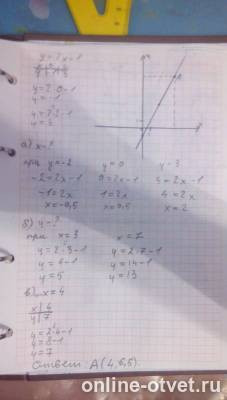 y = 2x-1
y = 2·0-1
y = -1
y = 2·2-1
y = 3
а) x-?
при y = -2 y = 0 y = 3
-2 = 2x-1 0 = 2x-1 3 = 2x-1
-1 = 2x 1 = 2x 4 = 2x
x = -0,5 x = 0,5 x = 2
б) y-?
при x = 3 x = 7
y = 2·3-1 y = 2·7-1
y = 6-1 y = 14-1
y = 5 y = 13
в) x = 4
x | 4
y | 7
y = 2·4-1
y = 8-1
y = 7
Ответ A(4; 6,5).
online-otvet.ru